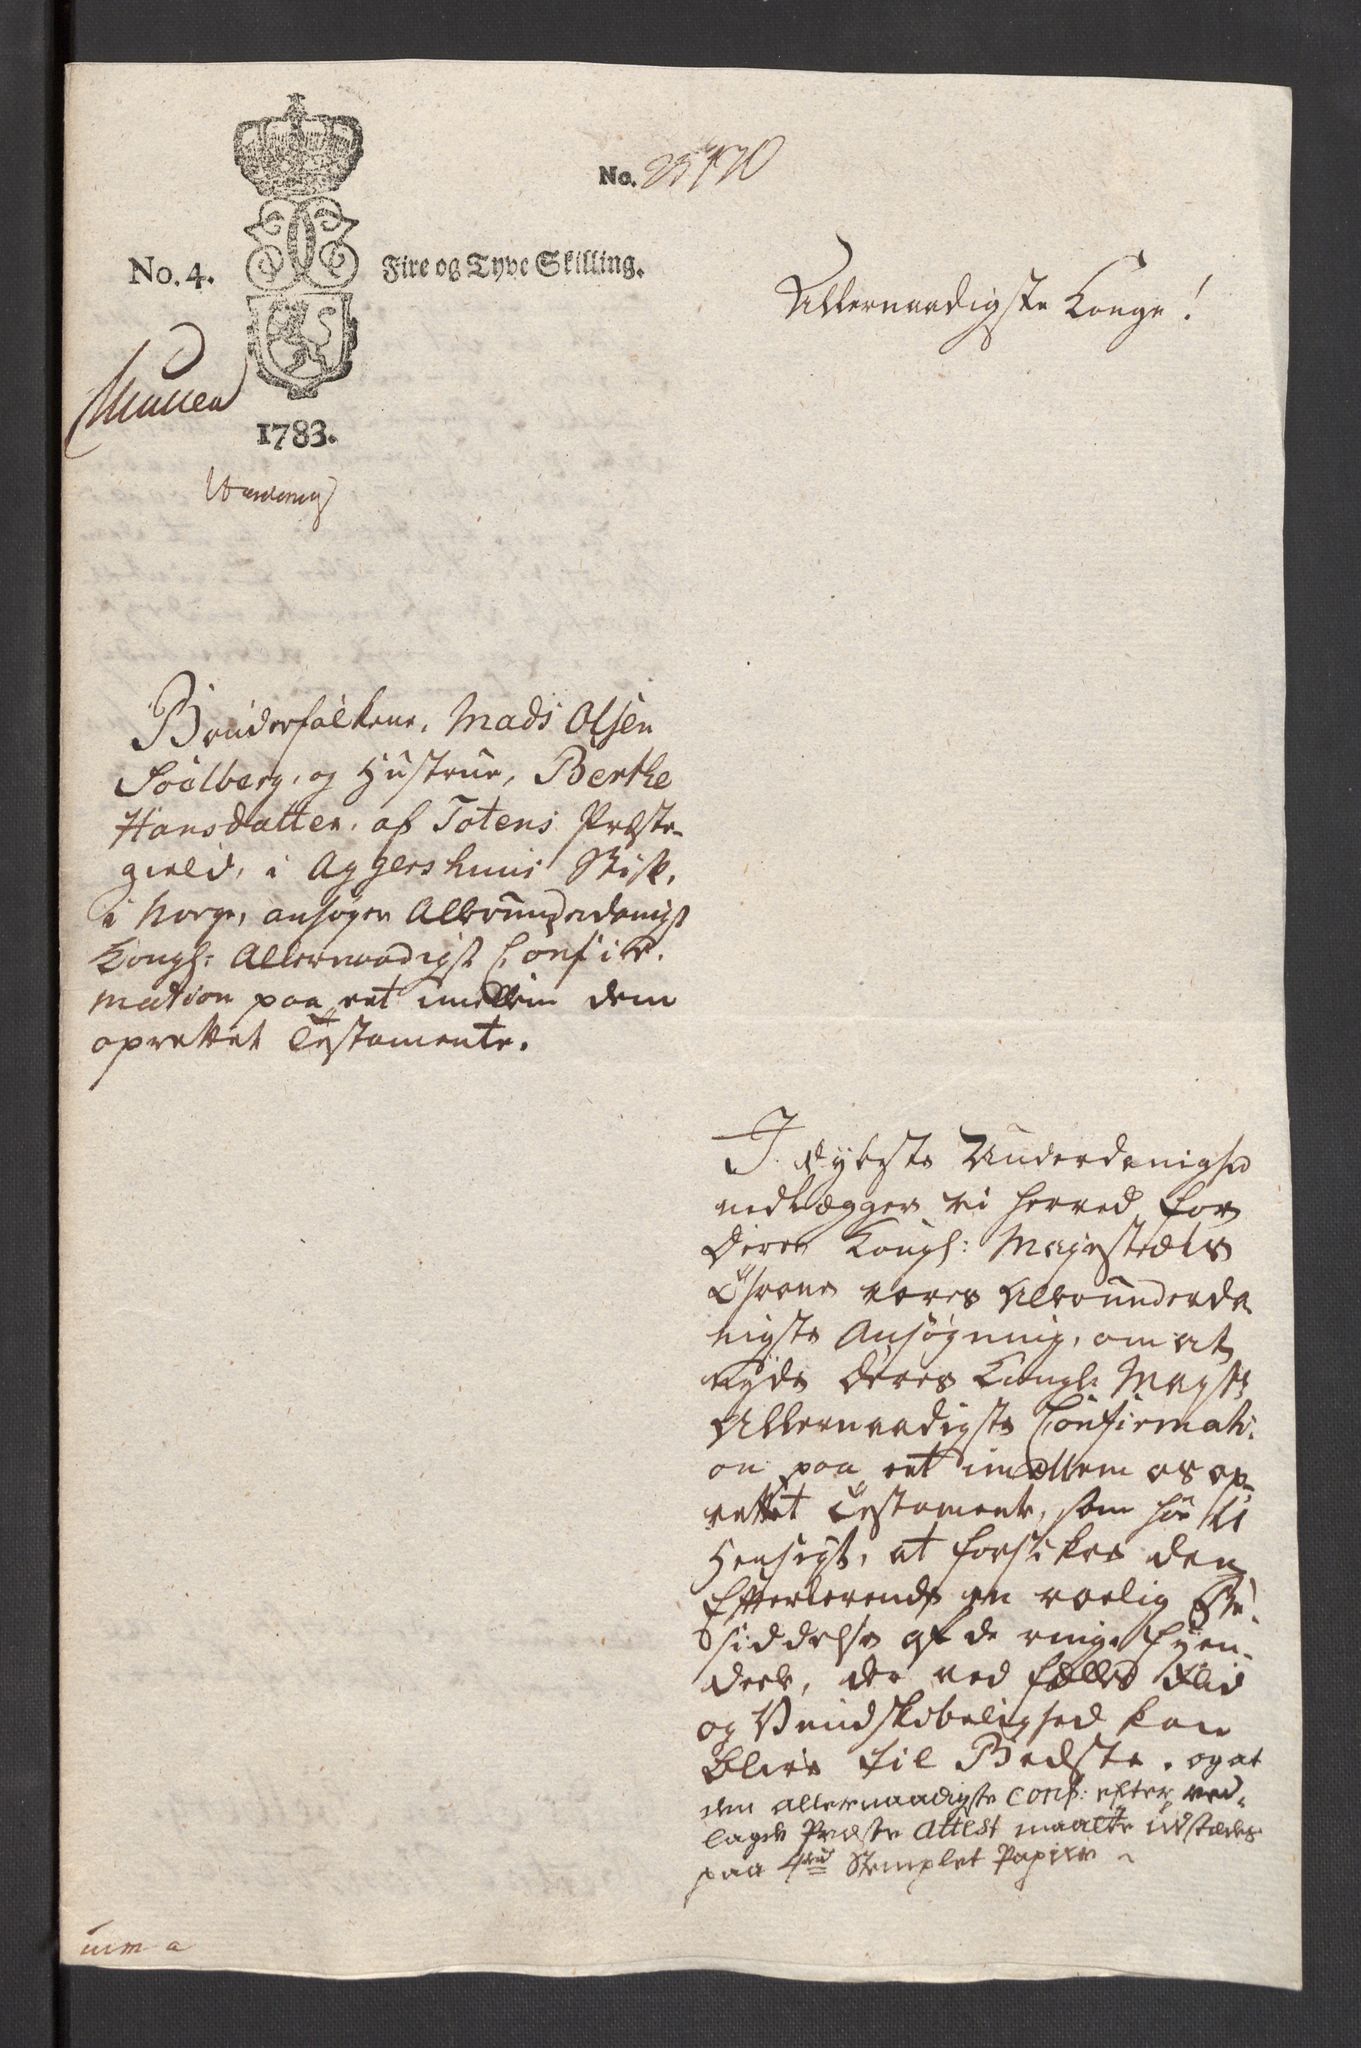 No. 25770
No. 4.
Fire og Tyve Skilling.
1783.
Allernaadigste Konge!
Bønderfolkene, Mads Olsen
Soelberg, og Hustrue, Berthe
Hansdatter, af Totens Præste-
gield, i Aggershuus Stift,
i Norge, ansøger Allerunderdanigst
Kongl: Allernaadigst Confir-
mation paa eet imellem dem
oprettet Testamente.
I dybeste Underdanighed
nedlægger vi herved for
Deres Kongl: Majestæts
Throne vores Allerunderda-
nigste Ansøgning, om at
nyde Deres Kongl: Mayts
Allernaadigste Confirmati-
on paa eet imellem os op-
rettet Testamente, som har til
Hensigt, at forsikre den
Efterlevende en roelig Be-
siddelse af de ringe Eyen-
deele, der ved fælles Flid
og Vindskibelighed kan
blive til Bedste. og at
den allernaadigste Conf: efter ved-
lagde Præste Attest maatte udstædes
paa 4de Stemplet Papiir